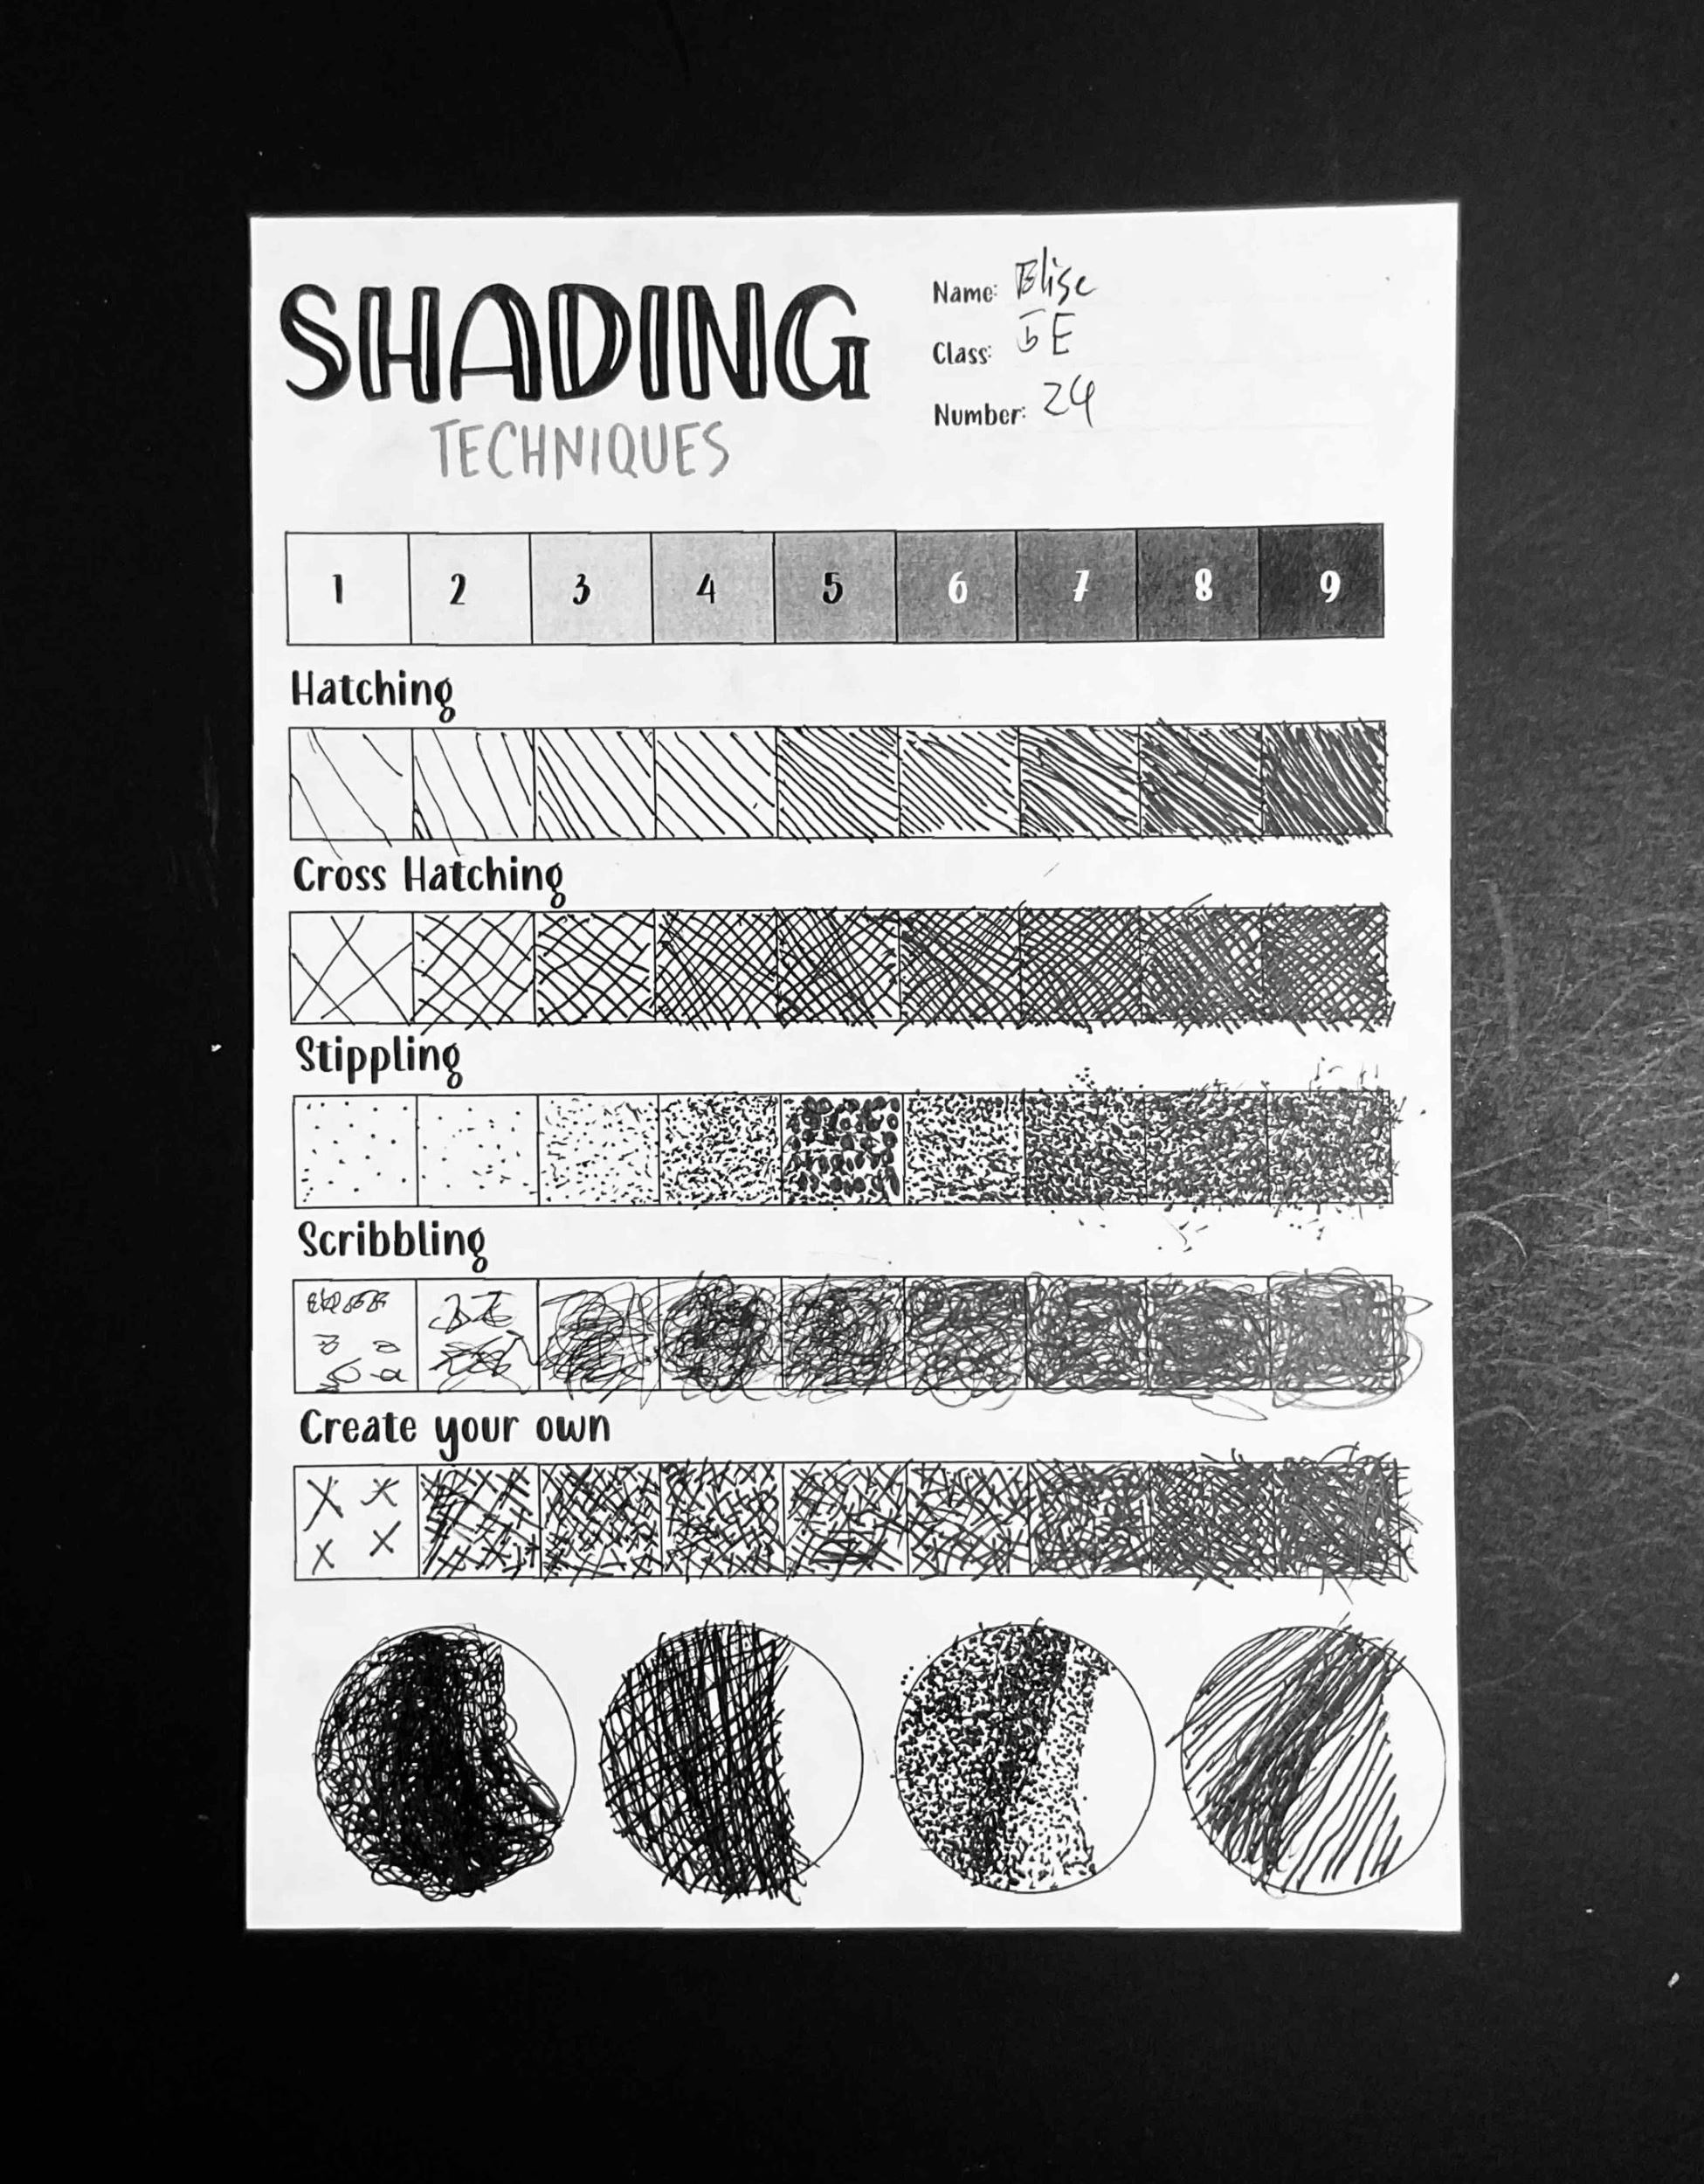 SHADING
TECHNIQUES
Name: Elise
Class: 5E
Number: 24
1 2 3 4 5 6 7 8 9
Hatching
Cross Hatching
Stippling
Scribbling
Create your own